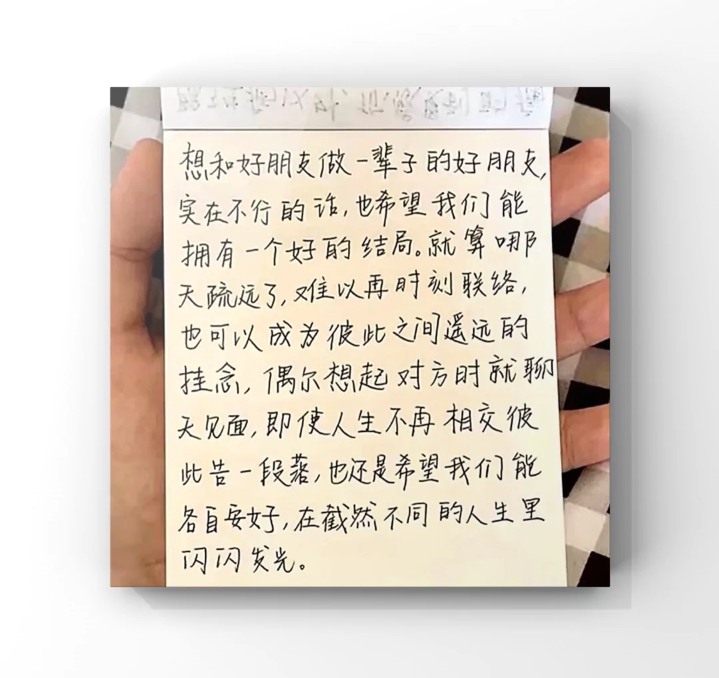 想和好朋友做一辈子的好朋友,
实在不行的话,也希望我们能
拥有一个好的结局。就算哪
天疏远了,难以再时刻联络,
也可以成为彼此之间遥远的
挂念,偶尔想起对方时就聊
天见面,即使人生不再相交彼
此告一段落,也还是希望我们能
各自安好,在截然不同的人生里
闪闪发光。